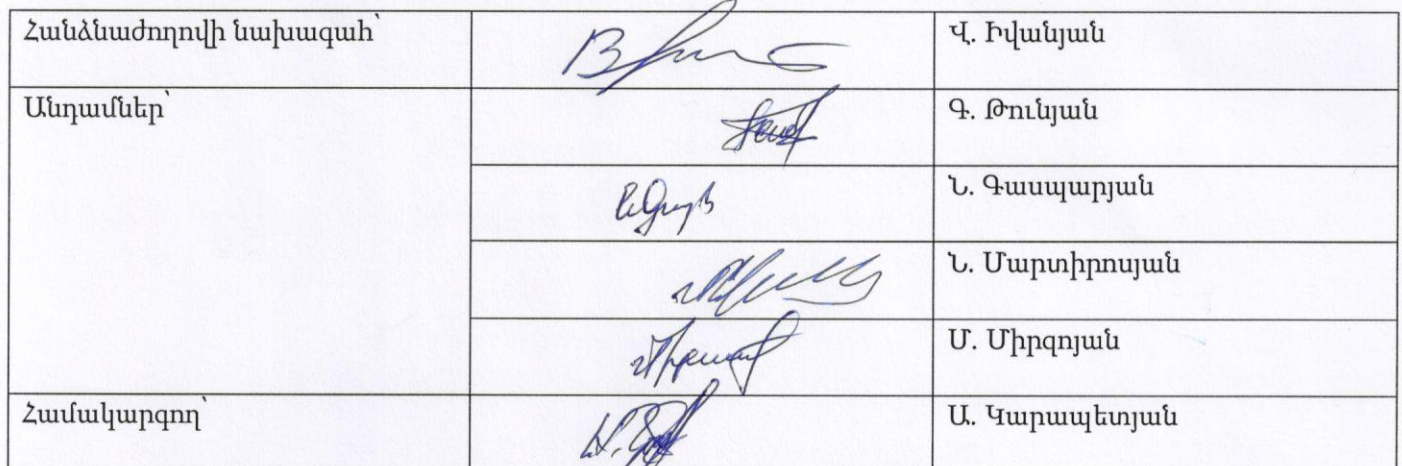 Հանձնաժողովի նախագահ՝ Վ. Իվանյան
Անդամներ՝ Գ. Թունյան
Ն. Գասպարյան
Ն. Մարտիրոսյան
Մ. Միրզոյան
Համակարգող՝ Ա. Կարապետյան